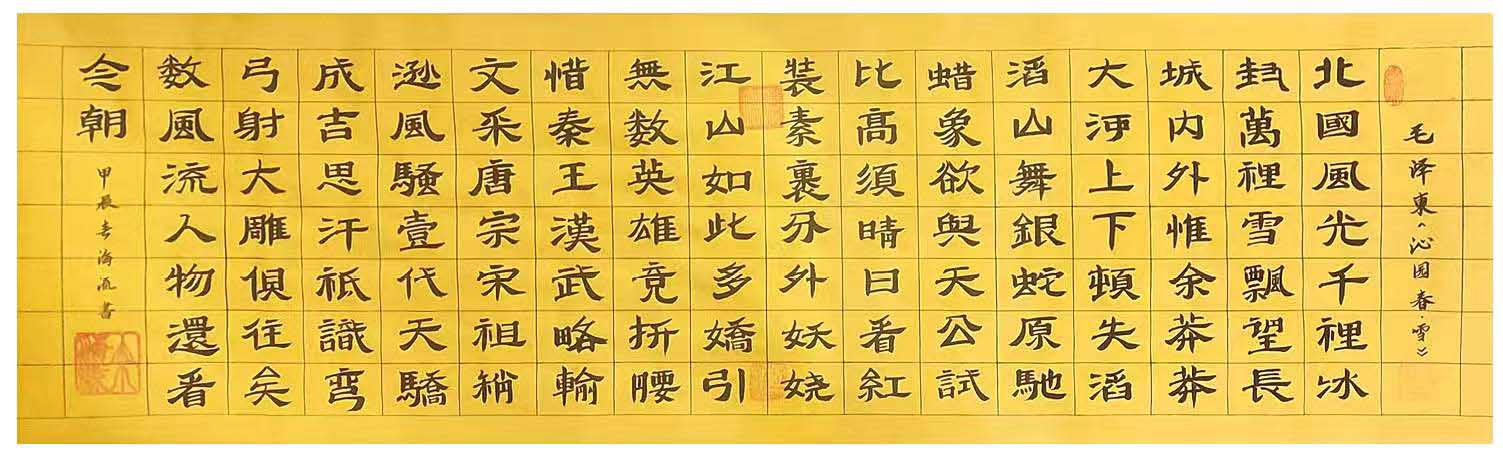 毛泽東《沁園春·雪》
北國風光千裡冰
封萬裡雪飄望長
城内外惟余莽莽
大河上下頓失滔
滔山舞銀蛇原馳
蜡象欲與天公試
比高須晴日看紅
裝素裹分外妖娆
江山如此多嬌引
無数英雄竞折腰
惜秦王漢武略輸
文采唐宗宋祖稍
遜風騷壹代天驕
成吉思汗祗識彎
弓射大雕俱往矣
数風流人物還看
今朝
甲辰春海流書